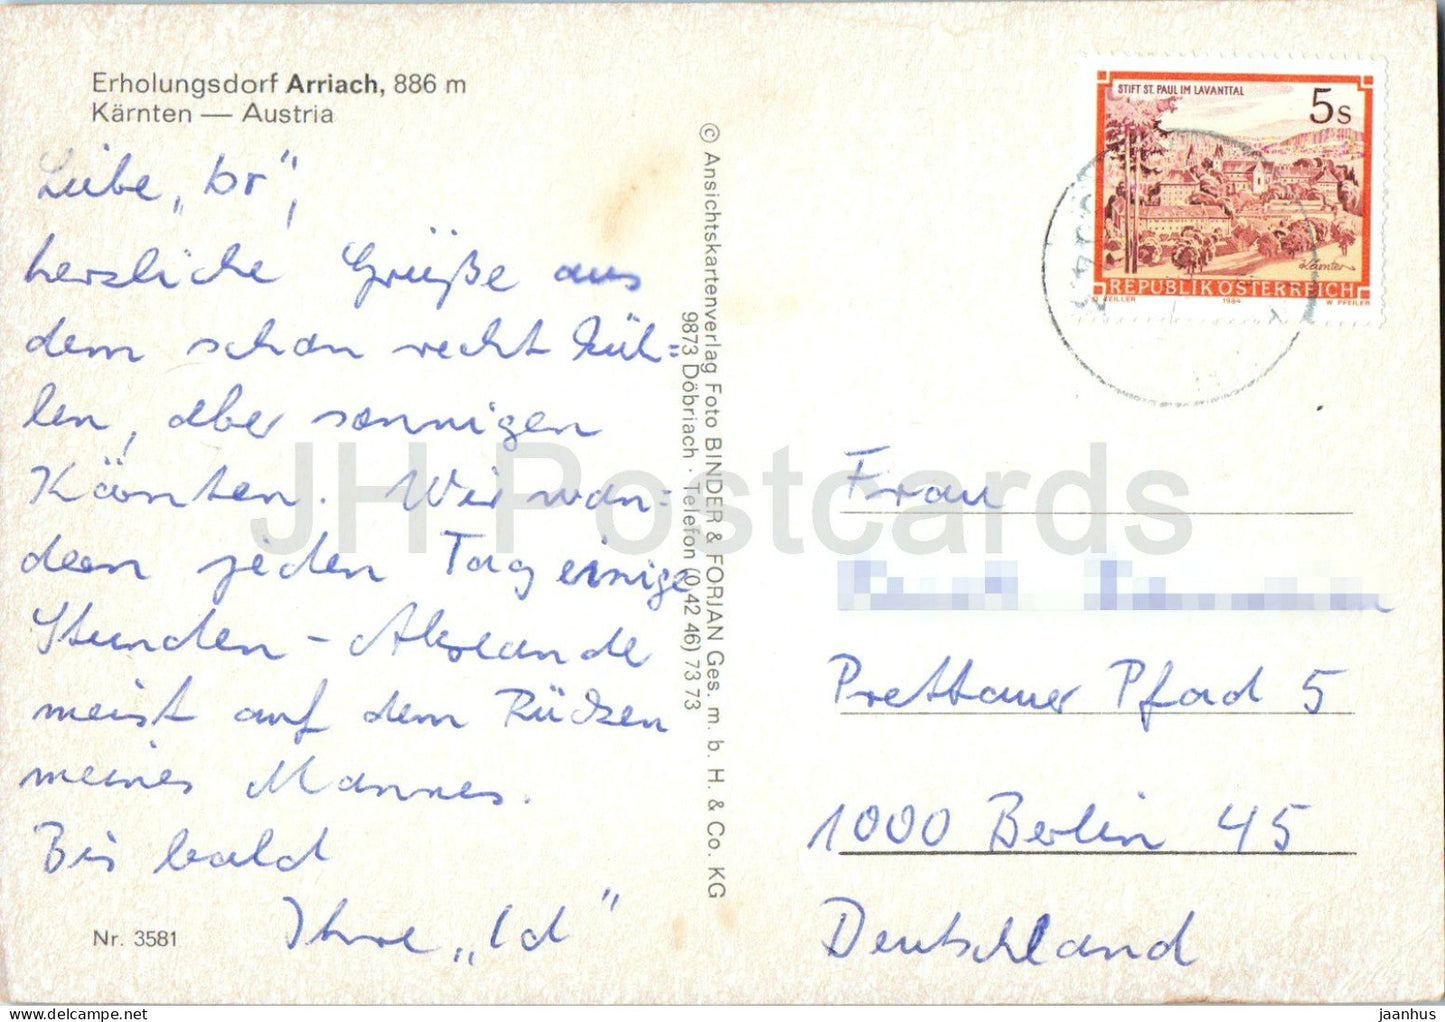 Erholungsdorf Arriach, 886 m
Kärnten — Austria
Liebe „br",
herzliche Grüße aus
dem schon recht küh=
len, aber sonnigen
Kärnten. Wir wan=
dern jeden Tag einige
Stunden - Alexande
meist auf dem Rücken
meines Mannes.
Bis bald
Ihre „Id"
Nr. 3581
© Ansichtskartenverlag Foto BINDER & FORJAN Ges. m. b. H. & Co. KG
9873 Döbriach · Telefon (0 42 46) 73 73
STIFT ST. PAUL IM LAVANTTAL
5 S
Kärnten
REPUBLIK ÖSTERREICH
O. ZEILLER 1984 W. PFEILER
Frau
Prettauer Pfad 5
1000 Berlin 45
Deutschland
JH Postcards
jaanhus
https://www.delcampe.net